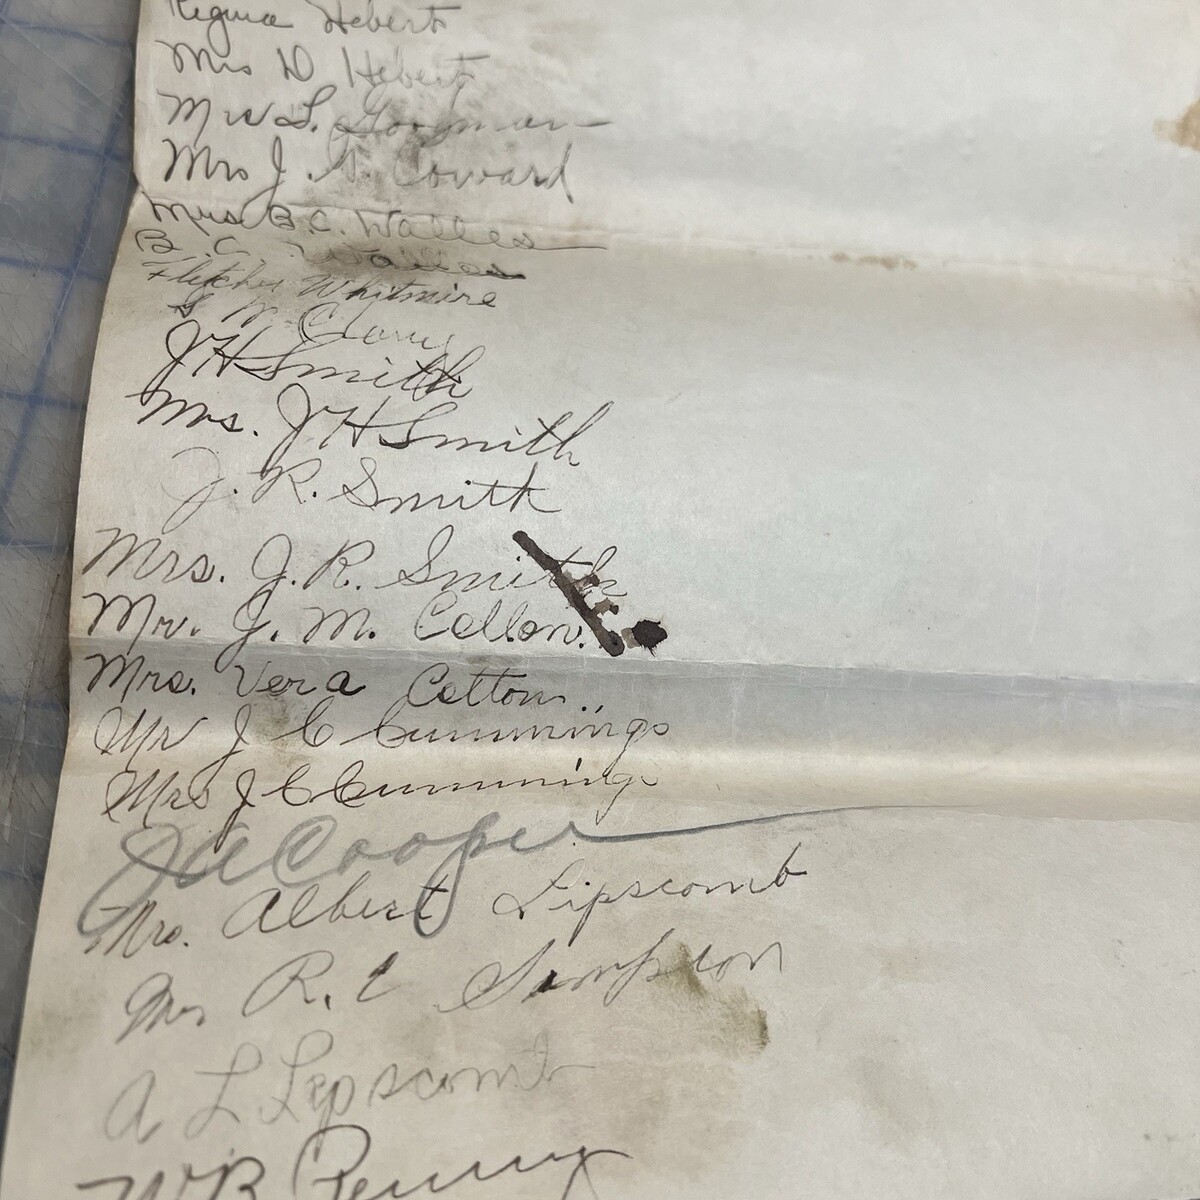 Regina Hebert
Mrs D Hebert
Mrs L.
Mrs J. Coward
Mrs. B. C. Walles
B. C. Walles
Fletcher Whitmire
W.
J H Smith
Mrs. J H Smith
J. R. Smith
Mrs. J. R. Smith
Mr. J. M. Cotton.
Mrs. Vera Cotton
Mr J C Cummings
Mrs J C Cummings
J A Cooper
Mrs. Albert Lipscomb
Mrs R. E Simpson
A L Lipscomb
W B Penny